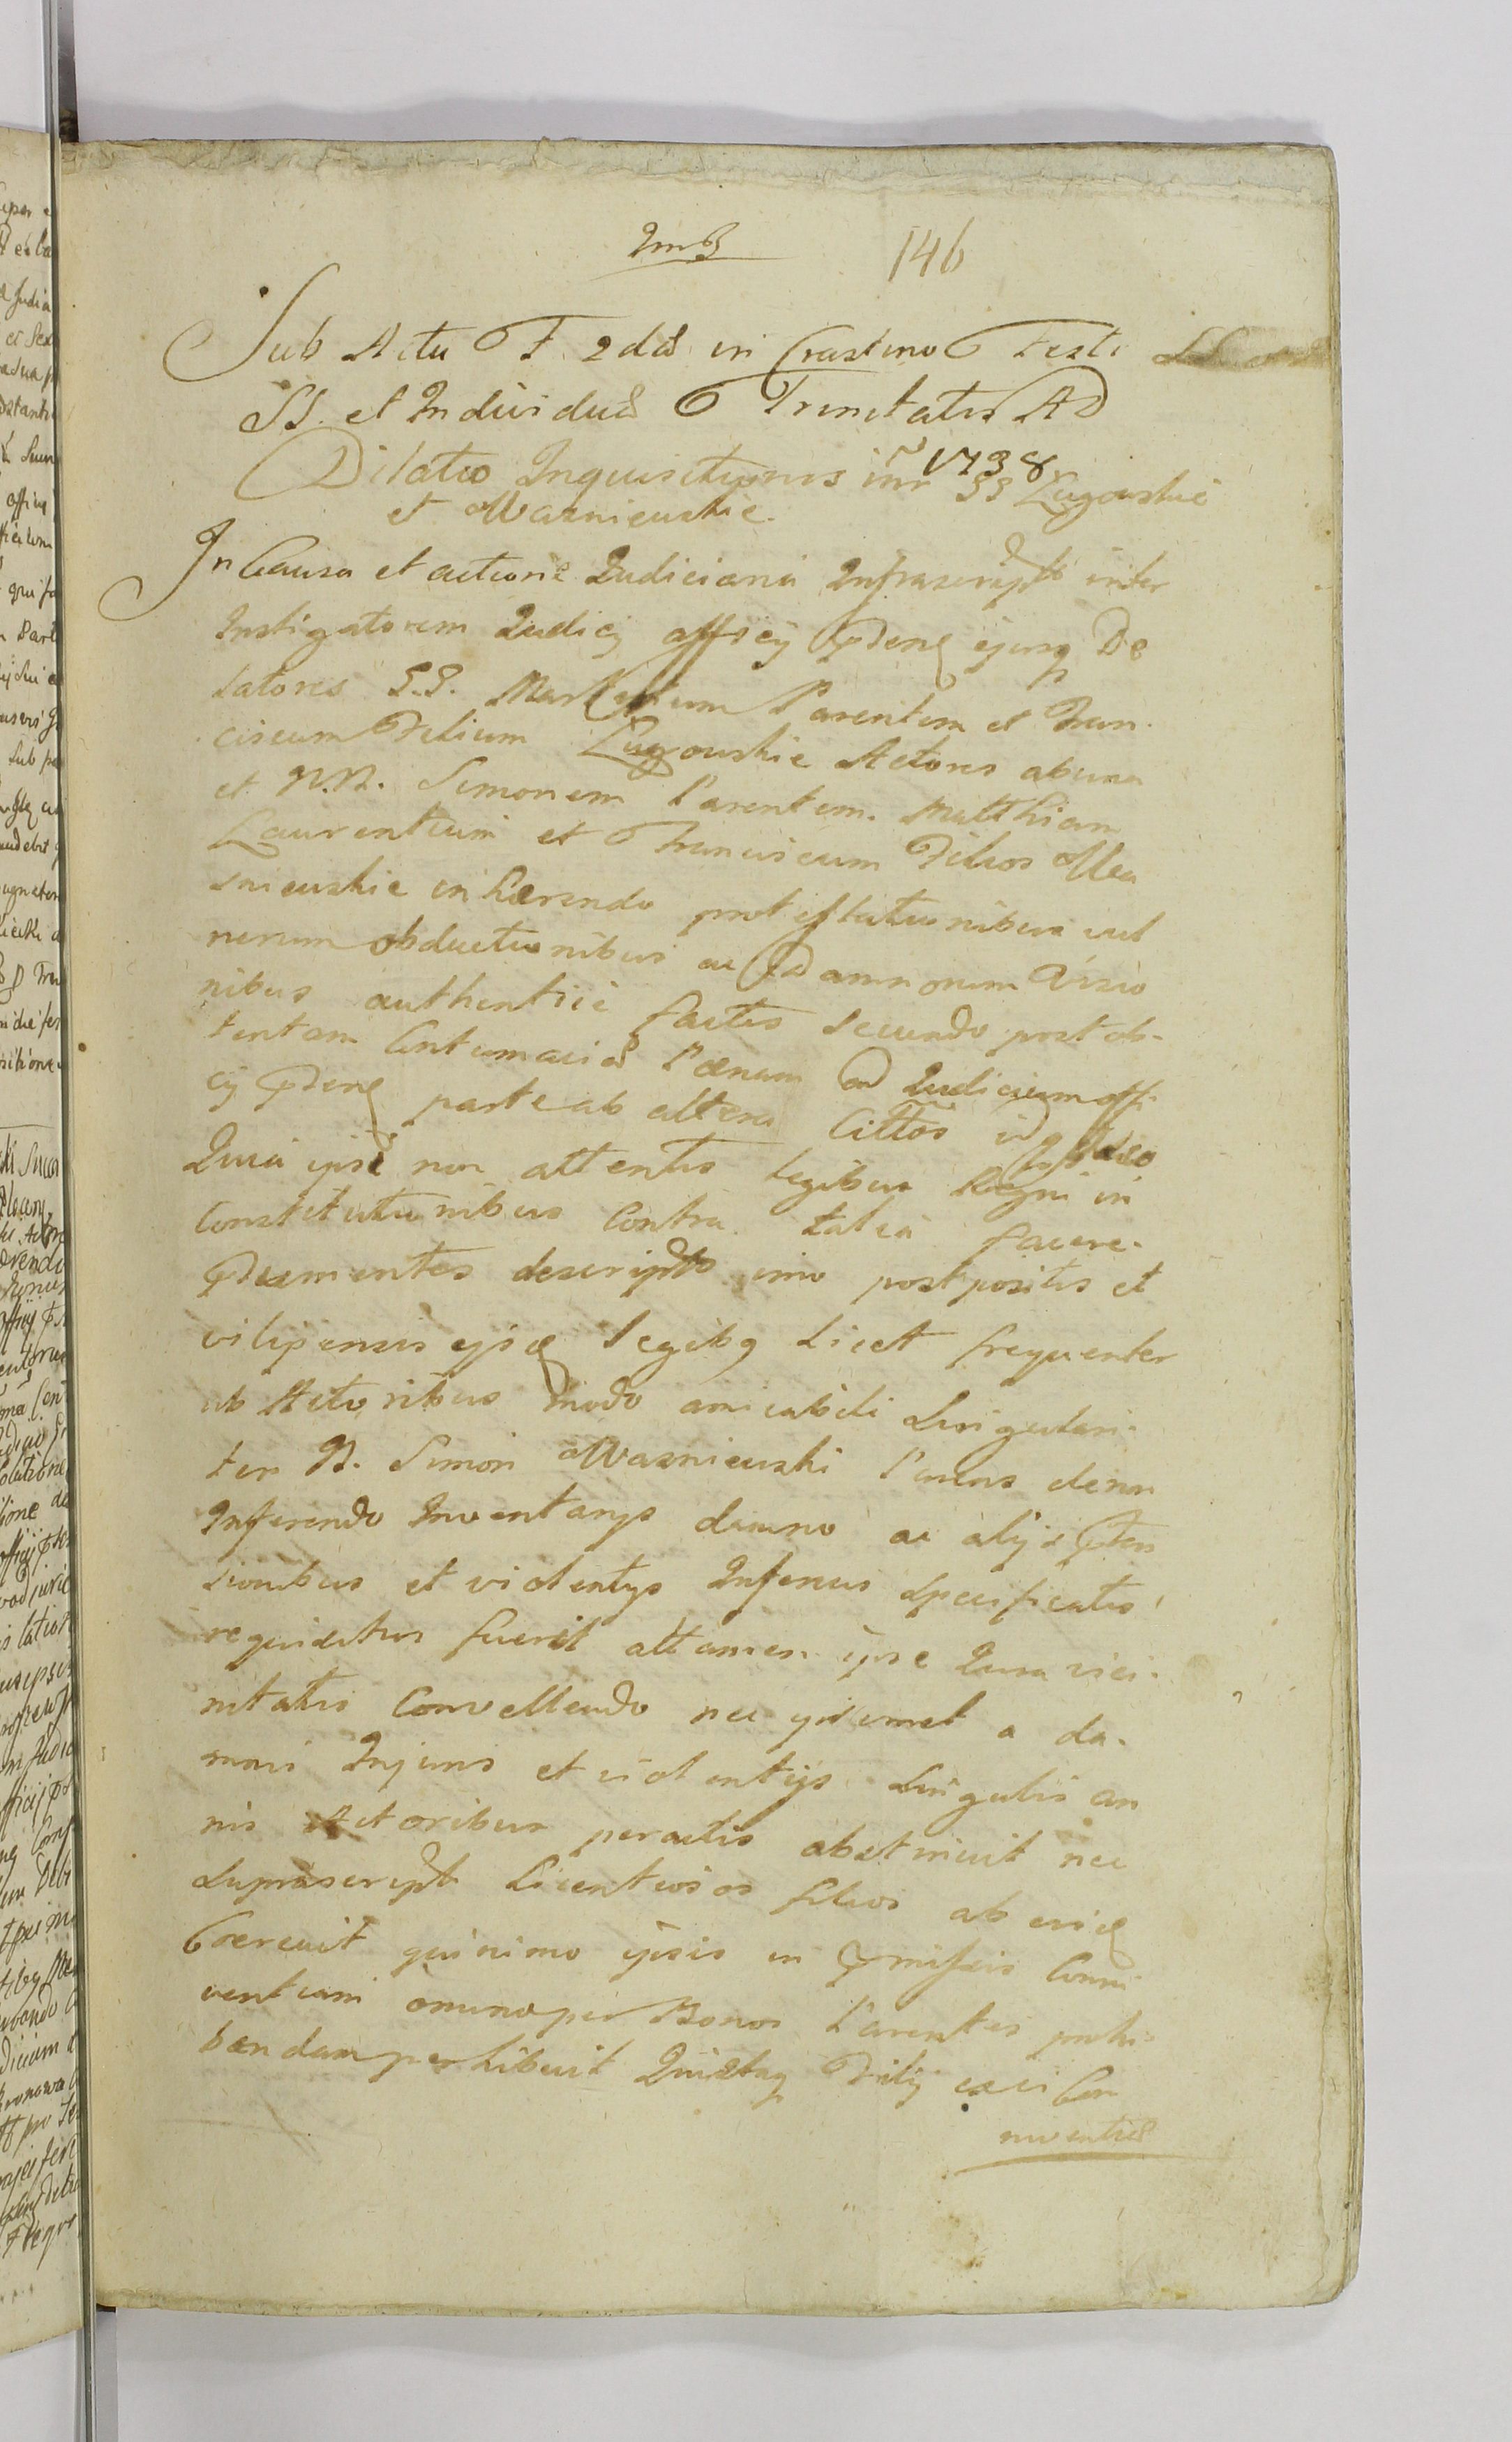 146
Sub Actu F. 2dâ in Crastino Festi
SS. et Individuâ Trinitatis AD
1738
Dilatio Inquisitionis inr SS Lugowskie
et Wasniewskie.
In Causa et actione Judiciaria Infrascript inter
Instigatorem Judicij officij ejusq De
latores S.S. Parentem et Fran.
ciscum Filium Lugowskie Actores ab una
et N.N. Simonem Parentem. Matthiam
Laurentium et Franciscum Filios Wa
sniewskie inhærendo protestationibus vul
nerum obductionibus ac Damnorum Visio
nibus authentice factis secundo post ob-
tentam Contumaciâ Pœnam ad Judicium offi
cij parte ab altera Cittos
Quia ipsi non attentis legibus Regni in
Constitutionibus Contra talia facere.
descript imo postpositis et
vilipensis legibq Licet frequenter
ab Actoribus modo amicabili Singulari-
ter N. Simon Wasniewski Parens de non
Inferendo Inventarys damno ac alijs
sionibus et violentys Inferius specificatis
requisitus fuerit attamen ipse Jura vici-
nitatis Convellendo nec ipsemet a da-
mnis Injurijs et violentijs Singulis an
nis Actoribus peractis abstinuit nec
suprascript Licentiosos filios ab
Coercuit quinimo ipsis in pmissis Conni
ventiam omnino per Bonos Parentes prohi-
bendam perhibuit Filij Con
niventiâ